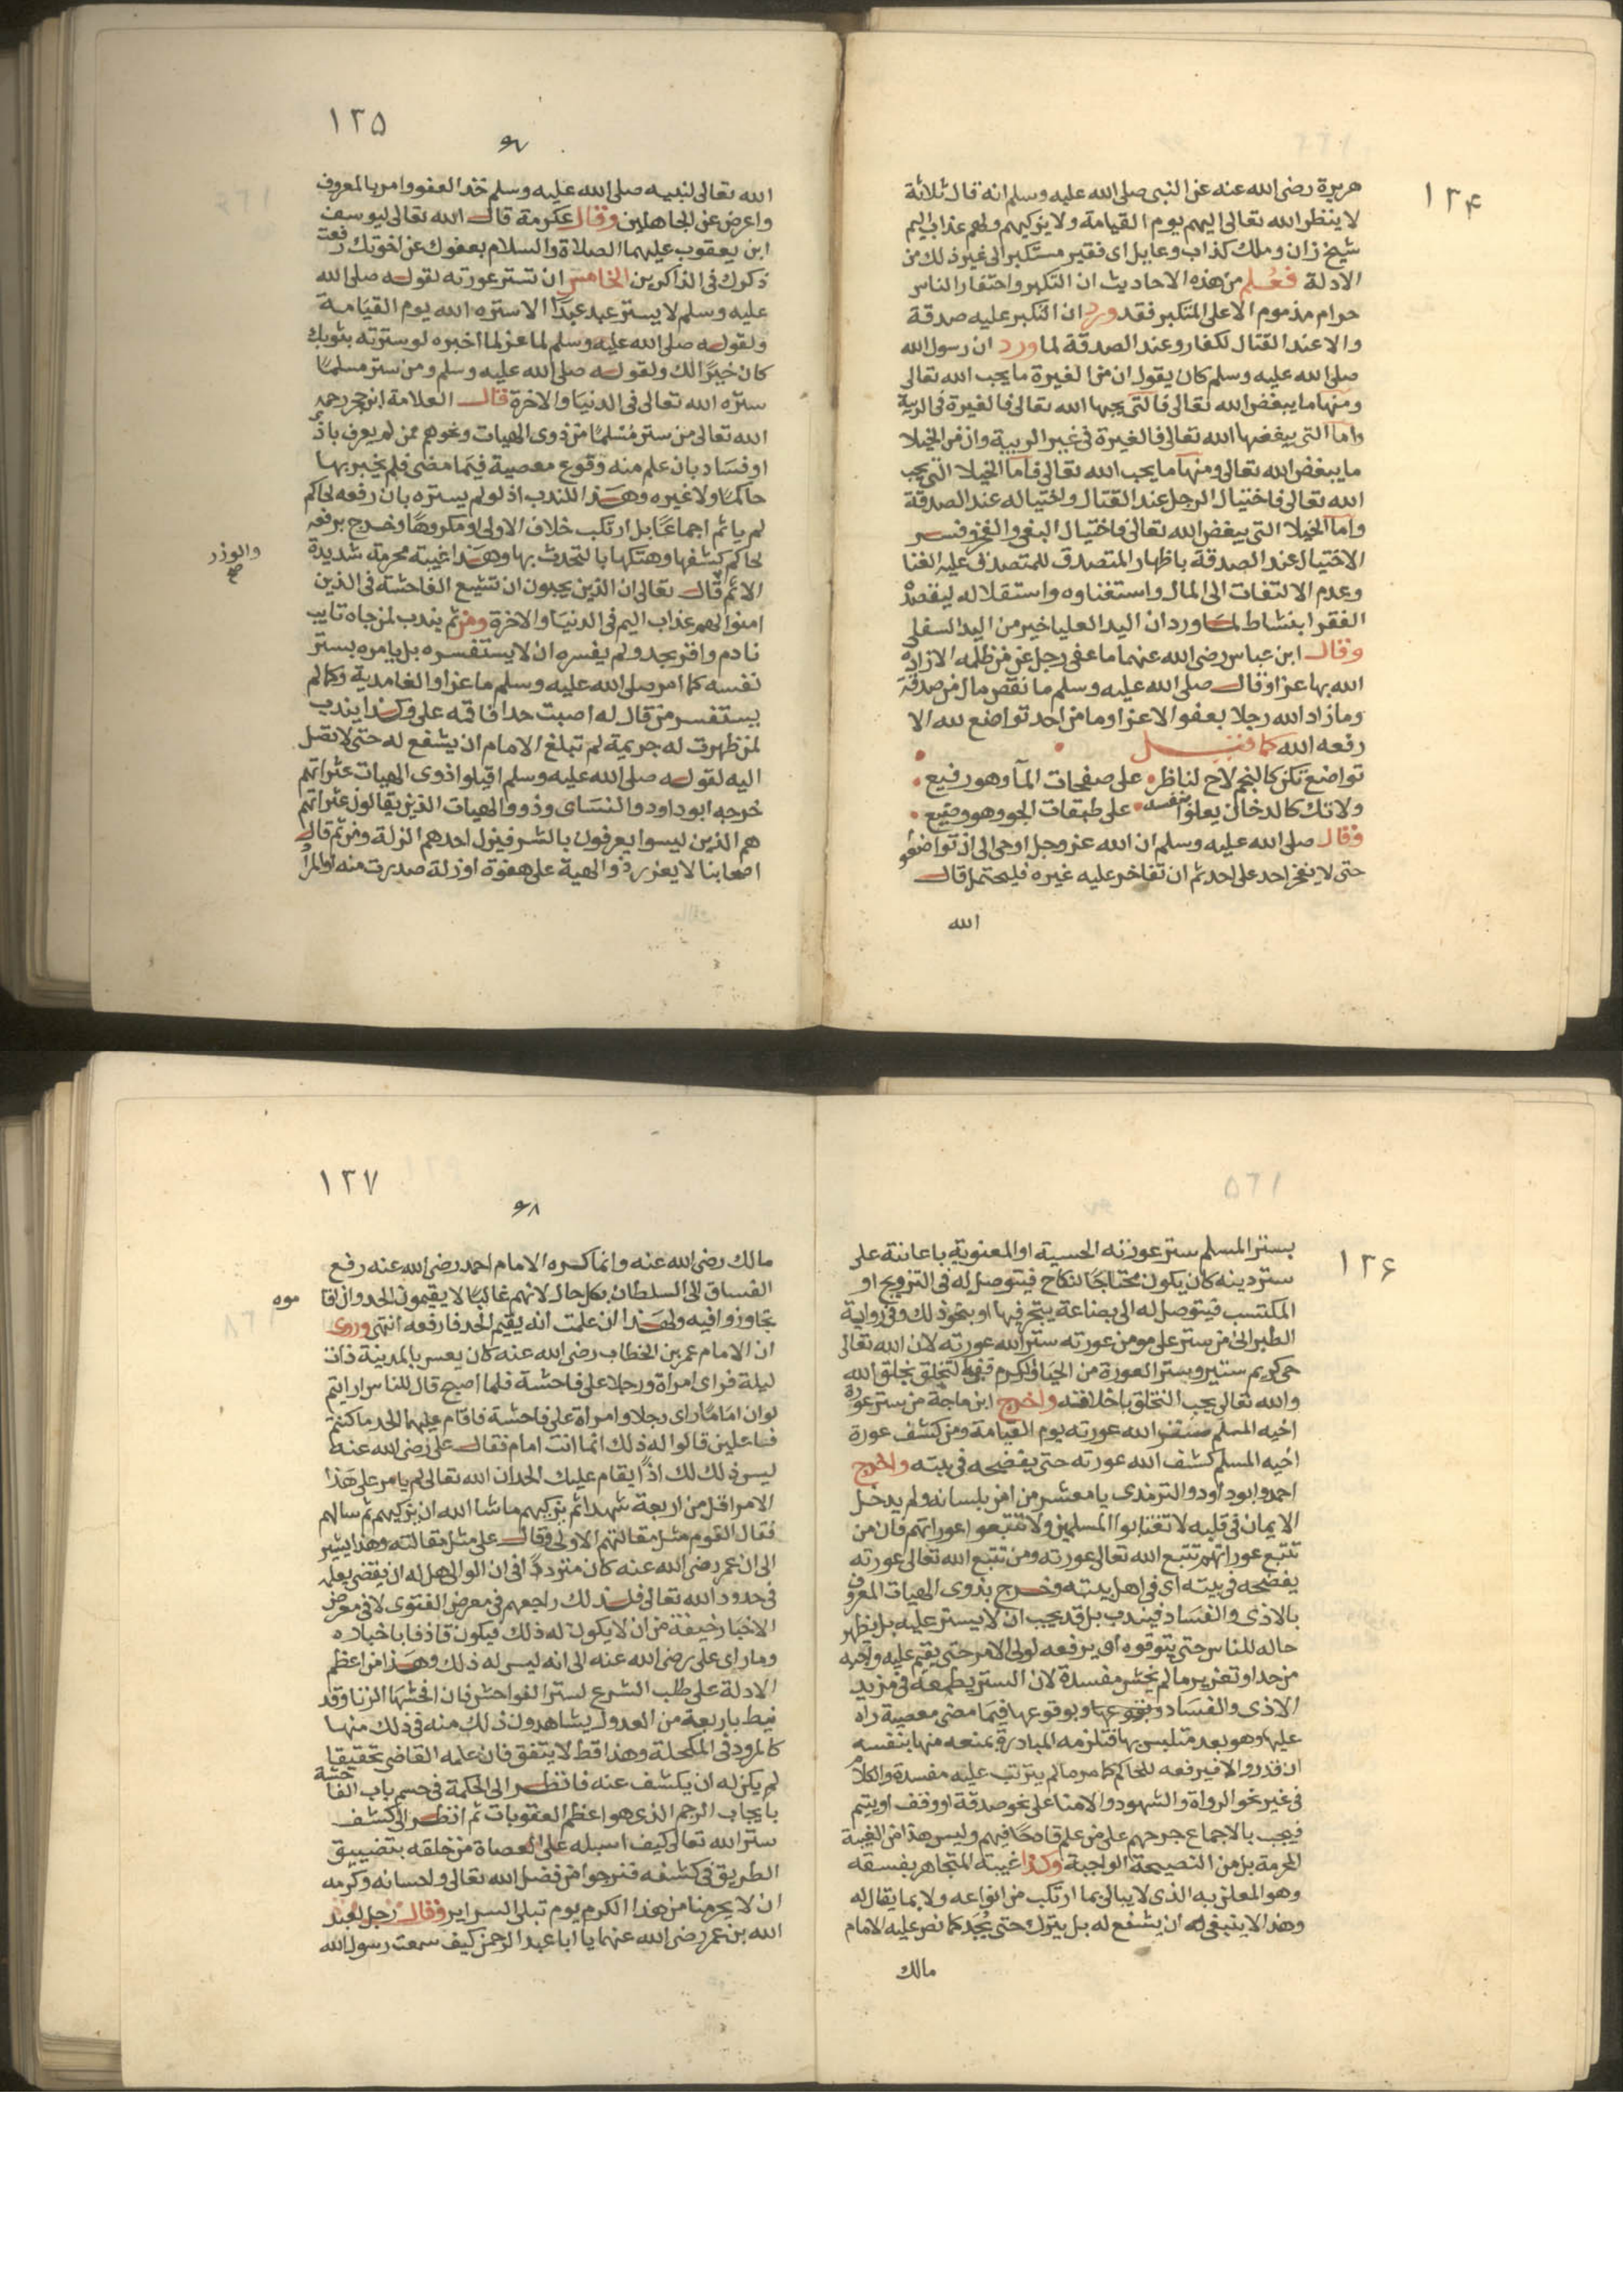 ١٣۴
هريرة رضى الله عنه عن النبى صلى الله عليه وسلم انه قال ثلاثة
لا ينظر الله تعالى اليهم يوم القيامة ولا يزكيهم ولهم عذاب اليم
شيخ زان وملك كذاب وعايل اى فقير مستكبر الى غير ذلك من
الادلة فعلم من هذه الاحاديث ان التكبر واحتقار الناس
حرام مذموم الا على المتكبر فقد ورد ان التكبر عليه صدقة
والا عند القتال لكفار وعند الصدقة لما ورد ان رسول الله
صلى الله عليه وسلم كان يقول ان من الغيرة ما يحب الله تعالى
ومنها ما يبغض الله تعالى فالتى يحبها الله تعالى فالغيرة فى الريبة
واما التى يبغضها الله تعالى فالغيرة فى غير الريبة وان من الخيلا
ما يبغض الله تعالى ومنها ما يحب الله تعالى فاما الخيلا التى يحب
الله تعالى فاختيال الرجل عند القتال واختياله عند الصدقة
واما الخيلا التى يبغض الله تعالى فاختيال البغى والفخر وفسر
الاختيال عند الصدقة باظهار المتصدق للمتصدق عليه الغنا
وعدم الالتفات الى المال واستغناوه واستقلاله ليقصد
الفقرا بنشاط لما ورد ان اليد العليا خير من اليد السفلى
وقال ابن عباس رضى الله عنهما ما عفى رجل عن من ظلمه الا زاده
الله بها عزا وقال صلى الله عليه وسلم ما نقص مال من صدقة
وما زاد الله رجلا بعفو الا عزا وما من احد تواضع لله الا
رفعه الله كما قيل
تواضع تكن كالنجم لاح لناظر على صفحات المآ وهو رفيع
ولا تك كالدخان يعلو بنفسه على طبقات الجو وهو وضيع
وقال صلى الله عليه وسلم ان الله عز وجل اوحى الى ان تواضعوا
حتى لا يفخر احد على احد ثم ان تفاخر عليه غيره فليحتمل قال
الله
١٣۵
٦٧
الله تعالى لنبيه صلى الله عليه وسلم خذ العفو وامر بالمعروف
واعرض عن الجاهلين وقال عكرمة قال الله تعالى ليوسف
ابن يعقوب عليهما الصلاة والسلام بعفوك عن اخوتك رفعت
ذكرك فى الذاكرين الخامس ان تستر عورته لقوله صلى الله
عليه وسلم لا يستر عبد عبدا الا ستره الله يوم القيامة
ولقوله صلى الله عليه وسلم لما عز لما اخبره لو سترته بثوبك
كان خيرا لك ولقوله صلى الله عليه وسلم ومن ستر مسلما
ستره الله تعالى فى الدنيا والاخرة قال العلامة ابن حجر رحمه
الله تعالى من ستر مسلما من ذوى الهيات ونحوهم ممن لم يعرف باذى
او فساد بان علم منه وقوع معصية فيما مضى فلم يخبر بها
حاكما ولا غيره وهذا للندب اذ لو لم يستره بان رفعه لحاكم
لم ياثم اجماعا بل ارتكب خلاف الاولى او مكروها وخرج برفعه
لحاكم كشفها وهتكها بالتحدث بها وهذا غيبة محرمة شديدة
والوزر
صح
الاثم قال تعالى ان الذين يحبون ان تشيع الفاحشة فى الذين
امنوا لهم عذاب اليم فى الدنيا والاخرة ومن ثم يندب لمن جاه تايب
نادم واقر بحد ولم يفسره ان لا يستفسره بل يامره بستر
نفسه كما امر صلى الله عليه وسلم ماعزا والغامدية وكما لم
يستفسر من قال له اصبت حدا فاقمه على وكذا يندب
لمن ظهرت له جريمة لم تبلغ الامام ان يشفع له حتى لا تصل
اليه لقوله صلى الله عليه وسلم اقيلوا ذوى الهيات عثراتهم
خرجه ابو داود والنساى وذووا الهيات الذين يقالون عثراتهم
هم الذين ليسوا يعرفون بالشر فيزل احدهم الزلة ومن ثم قال
اصحابنا لا يعزر ذو الهية على هفوة او زلة صدرت منه
١٣۶
بستر المسلم ستر عورته الحسية او المعنوية باعانته على
ستر دينه كان يكون محتاجا لنكاح فيتوصل له فى التزويج او
المكتسب فيتوصل له الى بضاعة يتجر فيها او بنحو ذلك وفى رواية
الطبرانى من ستر على مومن عورته ستر الله عورته لان الله تعالى
حى كريم ستير وستر العورة من الحيا والكرم ففيه التخلق بخلق الله
والله تعالى يحب التخلق باخلاقه واخرج ابن ماجة من ستر عورة
اخيه المسلم ستر الله عورته يوم القيامة ومن كشف عورة
اخيه المسلم كشف الله عورته حتى يفضحه فى بيته واخرج
احمد وابو داود والترمذى يا معشر من امن بلسانه ولم يدخل
الايمان فى قلبه لا تغتابوا المسلمين ولا تتبعوا عوراتهم فان من
تتبع عوراتهم تتبع الله تعالى عورته ومن تتبع الله تعالى عورته
يفضحه فى بيته اى فى اهل بيته وخرج بذوى الهيات المعروف
بالاذى والفساد فيندب بل قد يجب ان لا يستر عليه بل يظهر
حاله للناس حتى يتوقوه او يرفعه لولى الامر حتى يقيم عليه واجبه
من حد او تعزير ما لم يخش مفسدة لان الستر يطمعه فى مزيد
الاذى والفساد وبوقوعها فيما مضى معصية راه
عليها وهو بعد متلبس بها فتلزمه المبادرة بمنعه منها بنفسه
ان قدر والا فيرفعه للحاكم كما مر ما لم يترتب عليه مفسدة والكلام
فى غير نحو الرواة والشهود والامنا على نحو صدقة او وقف او يتيم
فيجب بالاجماع جرحهم على من علم قادحا فيهم وليس هذا من الغيبة
المحرمة بل من النصيحة الواجبة وكذا غيبة المتجاهر بفسقه
وهو المعلن به الذى لا يبالى بما ارتكب من انواعه ولا بما يقال له
وهذا لا ينبغى له ان يشفع له بل يترك حتى يحد كما نص عليه الامام
مالك
١٣٧
٦٨
مالك رضى الله عنه وانما كره الامام احمد رضى الله عنه رفع
الفساق الى السلطان بكل حال لانهم غالبا لا يقيمون الحد وان اقا
موه
تجاوزوا فيه ولهذا ان علمت انه يقيم الحد فارفعه انتهى وروى
ان الامام عمر بن الخطاب رضى الله عنه كان يعس بالمدينة ذات
ليلة فراى امراة ورجلا على فاحشة فلما اصبح قال للناس ارايتم
لو ان اماما راى رجلا وامراة على فاحشة فاقام عليهما الحد ما كنتم
فاعلين قالوا له ذلك انما انت امام فقال على رضى الله عنه
ليس ذلك لك اذا يقام عليك الحد ان الله تعالى لم يامر على هذا
الامر اقل من اربعة شهدا ثم تركهم ما شا الله ان يتركهم ثم سالهم
فقال القوم مثل مقالتهم الاولى وقال على مثل مقالته وهذا يشير
الى ان عمر رضى الله عنه كان مترددا فى ان الوالى هل له ان يقضى بعلمه
فى حدود الله تعالى فلذلك راجعهم فى معرض الفتوى لا فى معرض
الاخبار خيفة من ان لا يكون له ذلك فيكون قاذفا باخباره
ومال راى على رضى الله عنه الى انه ليس له ذلك وهذا من اعظم
الادلة على طلب الشرع لستر الفواحش فان افحشها الزنا وقد
نيط باربعة من العدول يشاهدون ذلك منه فى ذلك منها
كالمرود فى المكحلة وهذا قط لا يتفق فان علمه القاضى تحقيقا
لم يكن له ان يكشف عنه فانظر الى الحكمة فى حسم باب الفاحشة
بايجاب الرجم الذى هو اعظم العقوبات ثم انظر الى كشف
ستر الله تعالى كيف اسبله على العصاة من خلقه بتضييق
الطريق فى كشفه فنرجوا من فضل الله تعالى واحسانه وكرمه
ان لا يحرمنا من هذا الكرم يوم تبلى السراير وقال رجل لعبد
الله بن عمر رضى الله عنهما يا ابا عبد الرحمن كيف سمعت رسول الله